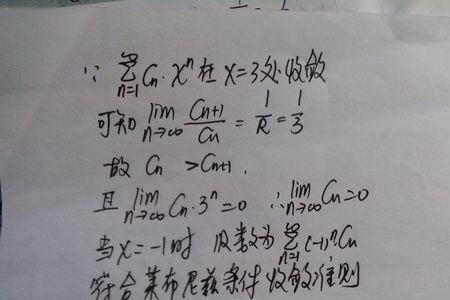 ∵ ∑_{n=1}^{∞} Cn·x^n 在 x=3处收敛
可知 lim_{n→∞} Cn+1/Cn = 1/R = 1/3
故 Cn >Cn+1.
且 lim_{n→∞} Cn·3^n=0 ∴ lim_{n→∞} Cn=0
当x=-1时 级数为 ∑_{n=1}^{∞} (-1)^n Cn
符合莱布尼兹条件收敛准则